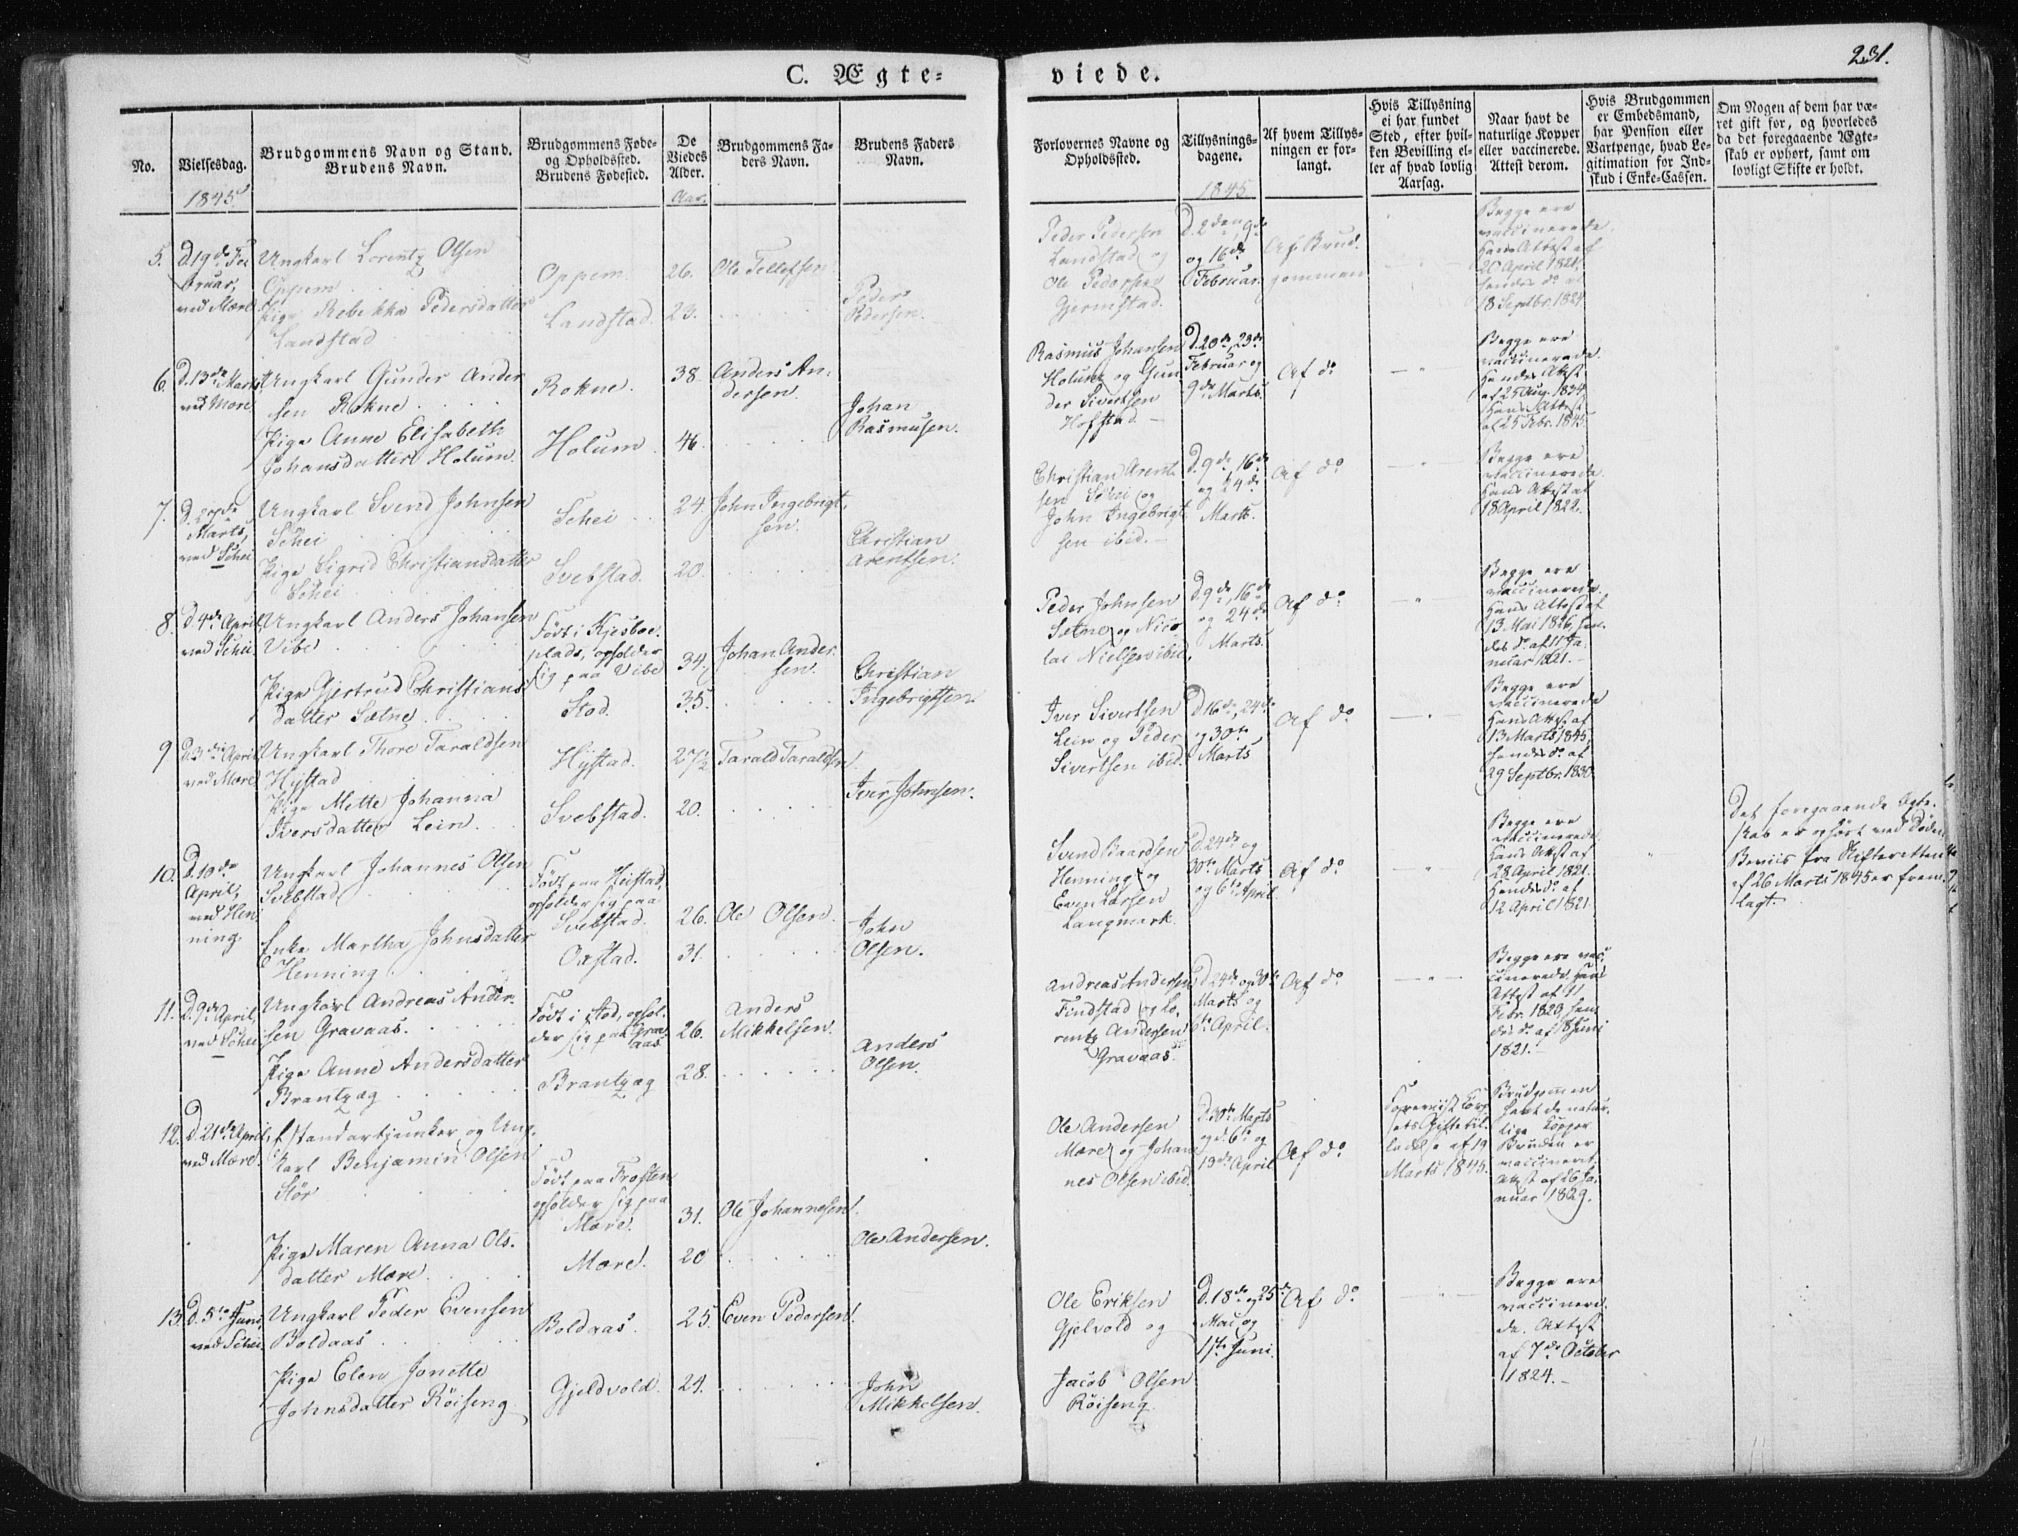 231.
C. Ægte-
viede.
No.
Vielsesdag.
1845
Brudgommens Navn og Stand.
Brudens Navn.
Brudgommens Føde-
og Opholdssted.
Brudens Fødested.
De
Viedes
Alder.
Aar.
Brudgommens Fa-
ders Navn.
Brudens Faders
Navn.
Forlovernes Navne og
Opholdssted.
Tillysnings-
dagene.
1845
Af hvem Tillys-
ningen er for-
langt.
Hvis Tillysning
ei har fundet
Sted, efter hvil-
ken Bevilling el-
ler af hvad lovlig
Aarsag.
Naar havt de
naturlige Kopper
eller vaccinerede.
Attest derom.
Hvis Brudgommen
er Embedsmand,
har Pension eller
Vartpenge, hvad Le-
gitimation for Ind-
skud i Enke-Cassen.
Om Nogen af dem har væ-
ret gift før, og hvorledes
da det foregaaende Ægte-
skab er ophørt, samt om
lovligt Skifte er holdt.
5.
D. 19de Fe-
bruar,
ved Mære
Ungkarl Lorentz Olsen
Oppem
Pige Rebekka Pedersdatter
Landstad
Oppem.
Landstad.
26.
23.
Ole Tellefsen
Peder
Pedersen.
Peder Pedersen
Landstad og
Ole Pedersen
Gjermstad.
D. 2den, 9de
og 16de
Februar.
Af Brud-
gommen
Begge ere
vaccinerede.
Hans Attest af
20 April 1821,
hendes do af
18 Septbr. 1824.
6.
D. 13de Marts
ved Mære
Ungkarl Gunder Ander
sen Rokne
Pige Anne Elisabeth
Johansdatter Holum.
Rokne.
Holum
38.
46.
Anders An-
dersen.
Johan
Rasmusen.
Rasmus Johansen
Holum og Gun
der Sivertsen
Hofstad.
D. 20de, 23de
Februar og
9de Marts.
Af do
Begge ere
vaccinerede.
Hendes Attest
af 25 Aug. 1834
Hans Attest
af 25 Febr. 1845.
7.
D.
Marts,
ved Schei
Ungkarl Svend Johnsen
Schei
Pige Sigrid Christiansdatter
Schei
Schei
Svebstad.
24.
20.
John Ingebrigt-
sen.
Christian
Arentsen.
Christian Arent
sen Schei og
John Ingebrigt
sen ibid.
D. 9de, 16de
og 24de
Marts.
Af do
Begge ere
vaccinerede.
Hans Attest af
18 April 1822.
8.
D. 4de April,
ved Schei.
Ungkarl Anders Johansen
Vibe
Pige Gjertrud Christians
datter Sætne
Født i Kjesboe-
plads, opholder
sig paa Vibe
Stod.
34.
35.
Johan Ander
sen.
Christian
Ingebrigtsen.
Peder Johnsen
Sætne og Nico
lai Nielsen ibid.
D. 9de, 16de
og 24de
Marts.
Af do
Begge ere
vaccinerede
Hans Attest af
13 Mai 1826, hen-
des do af 11 Ja-
nuar 1821.
9
D. 3die April
ved Mære
Ungkarl Thore Taraldsen
Hystad
Pige Mette Johanna
Iversdatter Lein.
Hystad.
Svebstad.
27½
20.
Tarald Taraldsen
Iver Johnsen.
Iver Sivertsen
Lein og Peder
Sivertsen ibid.
D. 16de, 24de
og 30te
Marts
Af do
Begge ere
vaccinerede
Hans Attest af
13 Marts 1845,
hendes do af
29 Septbr. 1830.
10.
D. 10de
April,
ved Hen
ning
Ungkarl Johannes Olsen
Svebstad
Enke Martha Johnsdatter
Henning
Født paa Heistad,
opholder sig paa
Svebstad.
Oxstad.
26.
31.
Ole Olsen.
John
Olsen.
Svend Baardsen
Henning og
Even Larsen
Langmark.
D. 24de og
30te Marts
og 6te April.
Af do
Begge ere
vaccinerede
Hans Attest af
28 April 1821.
Hendes do af
12 April 1821.
Det foregaaende Ægte-
skab er ophørt ved Døden.
Beviis fra Skifteretten
af 26 Marts 1845 er frem-
lagt.
11.
D. 9de April,
ved Schei
Ungkarl Andreas Ander-
sen Gravaas.
Pige Anne Andersdatter
Brantzæg
Født i Stod, ophol-
der sig paa Grav
aas
Brantzæg
26.
28.
Anders
Mikkelsen.
Anders
Olsen.
Andreas Andersen
Findstad og Lo-
rentz Andersen
Gravaas.
D. 24de og 30te
Marts og
6te April.
Af do
Begge ere vac
cinerede, Hans
Attest af 11
Febr. 1820, hen-
des do af 18 Juni
1821.
12.
D. 21de April,
ved Mære.
Standartjunker og Ung-
karl Benjamin Olsen
Stör
Pige Maren Anna Ols-
datter Mære.
Født paa Frosten
opholder sig paa
Mære.
Mære.
31.
20
Ole Johannesen.
Ole Andersen.
Ole Andersen
Mære og Johan
nes Olsen ibid.
D. 30te Marts
og d. 6te og
13de April
Af do
Foreviist Corp
sets Giftetil-
ladelse af 19
Marts 1845.
Brudgommen
havt de natur-
lige Kopper
Bruden er
vaccineret.
Attest af 26 Ja-
nuar 1829.
13.
D. 5te Juni,
ved Schei.
Ungkarl Peder Evensen
Boldaas
Pige Elen Jonette
Johnsdatter Röiseng
Boldaas.
Gjeldvold.
25.
24.
Even Pedersen.
John
Mikkelsen.
Ole Eriksen
Gjelvold og
Jacob Olsen
Röiseng.
D. 18de og 25de
Mai og
1ste Juni.
Af do
Begge ere
vaccinere-
de. Attest
af 7de October
1824.